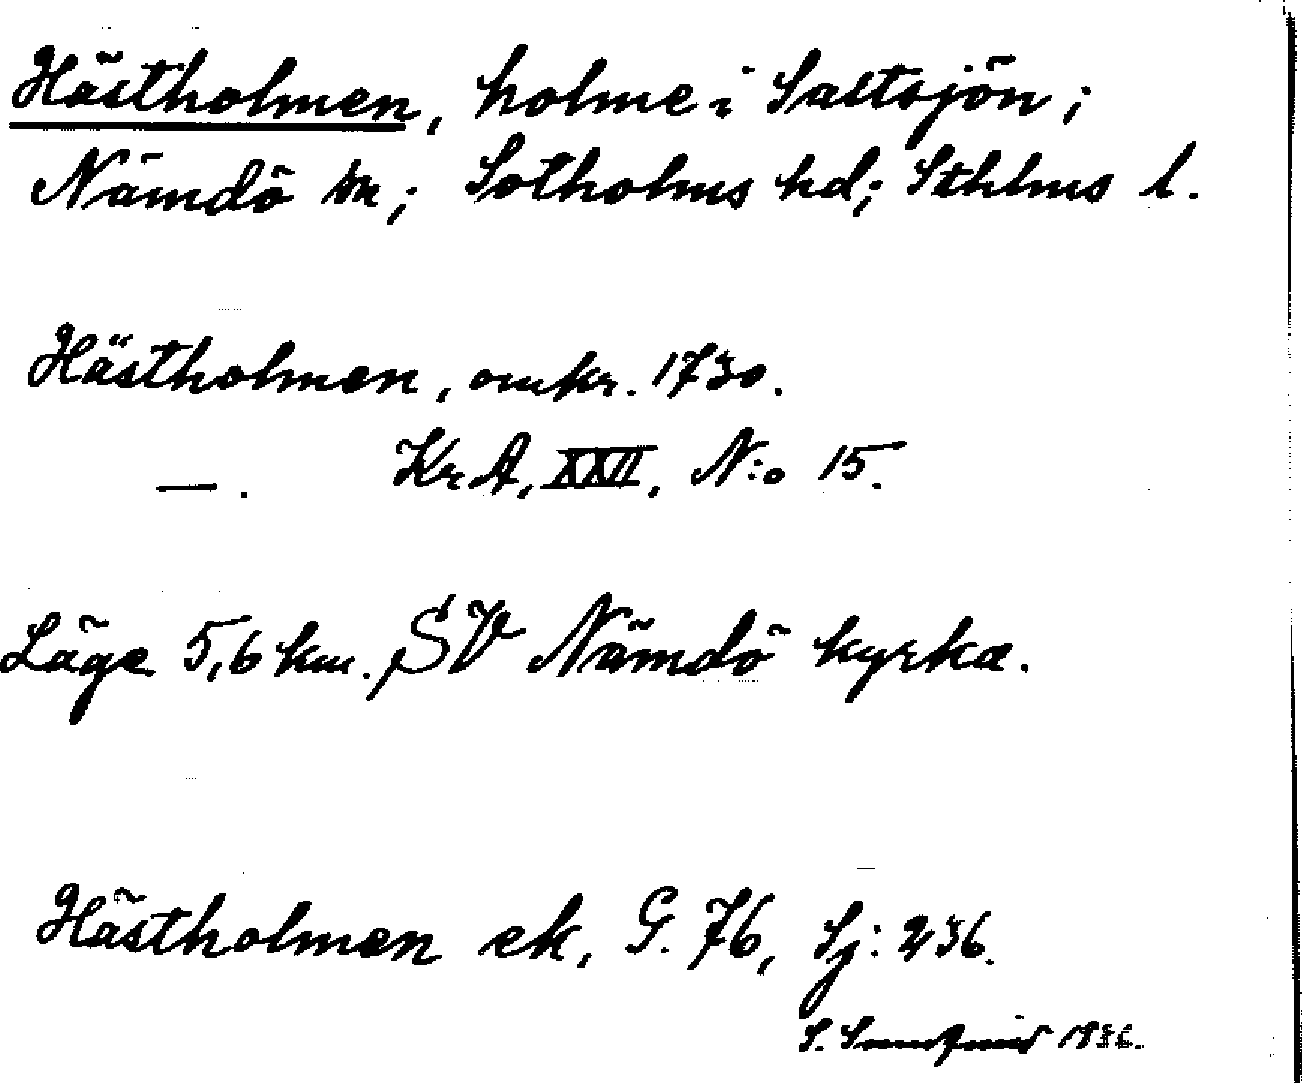 Hästholmen, holme i Saltsjön;
Nämdö sn; Sotholms hd; Sthlms l.
Hästholmen, omkr. 1730.
—. Kr A, XXII, N:o 15.
Läge 5,6 km. SV Nämdö kyrka.
Hästholmen ek, G. 76, Sj: 236.
S. 1936.